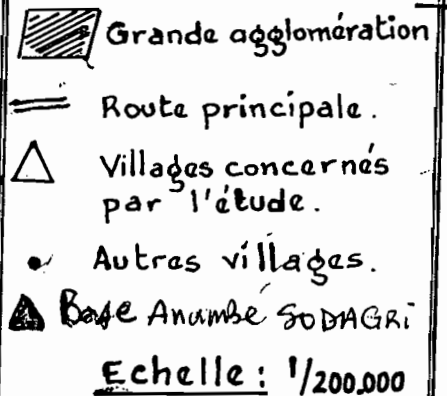 Grande agglomération
Route principale.
Villages concernés
par l'étude.
Autres villages.
Base Anambé SODAGRI
Echelle: 1/200,000